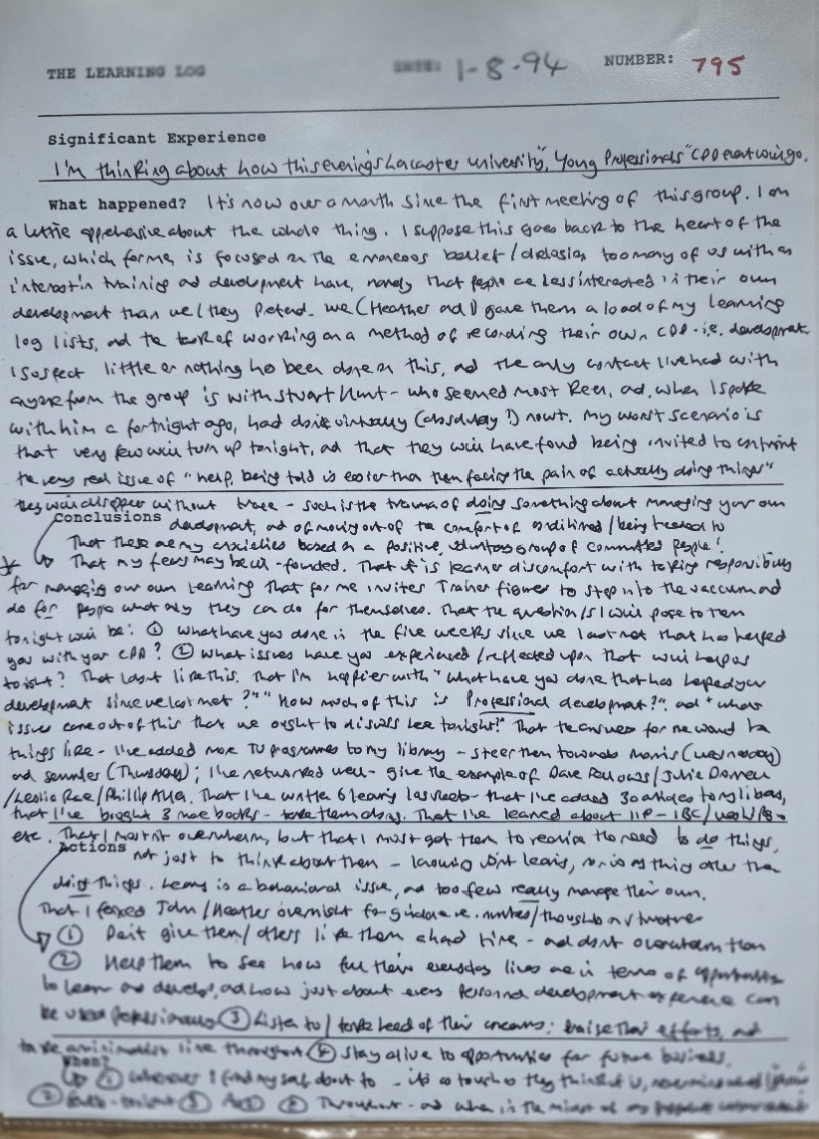 THE LEARNING LOG DATE: 1-8-94 NUMBER: 795
Significant Experience
I'm thinking about how this evening's Lancaster University, "Young Professionals" CPD event will go.
What happened? It's now over a month since the first meeting of this group. I am
a little apprehensive about the whole thing. I suppose this goes back to the heart of the
issue, which for me is focused on the erroneous belief/delusion too many of us with an
interest in training and development have, namely that people are less interested in their own
development than we/they pretend. We (Heather and I) gave them a load of my learning
log lists, and the task of working on a method of recording their own CPD - i.e. development.
I suspect little or nothing has been done on this, and the only contact I've had with
anyone from the group is with Stuart Hunt - who seemed most keen, and, when I spoke
with him a fortnight ago, had done virtually (absolutely!) nowt. My worst scenario is
that very few will turn up tonight, and that they will have found being invited to confront
the very real issue of "help, being told is easier than then facing the pain of actually doing things"
they will disappear without trace - such is the trauma of doing something about managing your own
Conclusions development, and of moving out of the comfort of conditioned/being treated to
That these are my anxieties based on a positive, voluntary group of committed people!
That my fears may be well-founded. That it is learner discomfort with taking responsibility
for managing our own learning that for me invites Trainer figures to step into the vaccum and
do for people what only they can do for themselves. That the question/s I will pose to them
tonight will be: ① What have you done in the five weeks since we last met that has helped
you with your CPD? ② What issues have you experienced/reflected upon that will help us
tonight? That I don't like this. That I'm happier with "What have you done that has helped your
development since we last met?" "How much of this is Professional development?", and "what
issues come out of this that we ought to discuss here tonight!" That the answers for me would be
things like - I've added more TV programmes to my library - steer them towards Morris (Wednesday)
and (Thursday); I've networked well - give the example of Dave Fellows/Julie
/Leslie Rae/Phillip. That I've written 6 learning log sheets - that I've added 30 articles to my library,
that I've bought 3 more books - take them along. That I've learned about IIP - IBC/
etc. That I mustn't overwhelm, but that I must get them to realise the need to do things,
Actions not just to think about them - knowing isn't learning, nor is anything other than
doing things. Learning is a behavioural issue, and too few really manage their own.
That I faxed John/Heather overnight for guidance - /thoughts
① Don't give them/others like them a hard time - and don't overwhelm them
② Help them to see how full their everyday lives are in terms of opportunities
to learn and develop, and how just about every personal development experience can
be used professionally ③ Listen to/take heed of their concerns; praise their efforts, and
take a minimalist line throughout ④ Stay alive to opportunities for future business.
When?
① Whenever I find myself about to - it's as tough as they think it is,
② tonight ③ ④ Throughout - and when in the midst of my